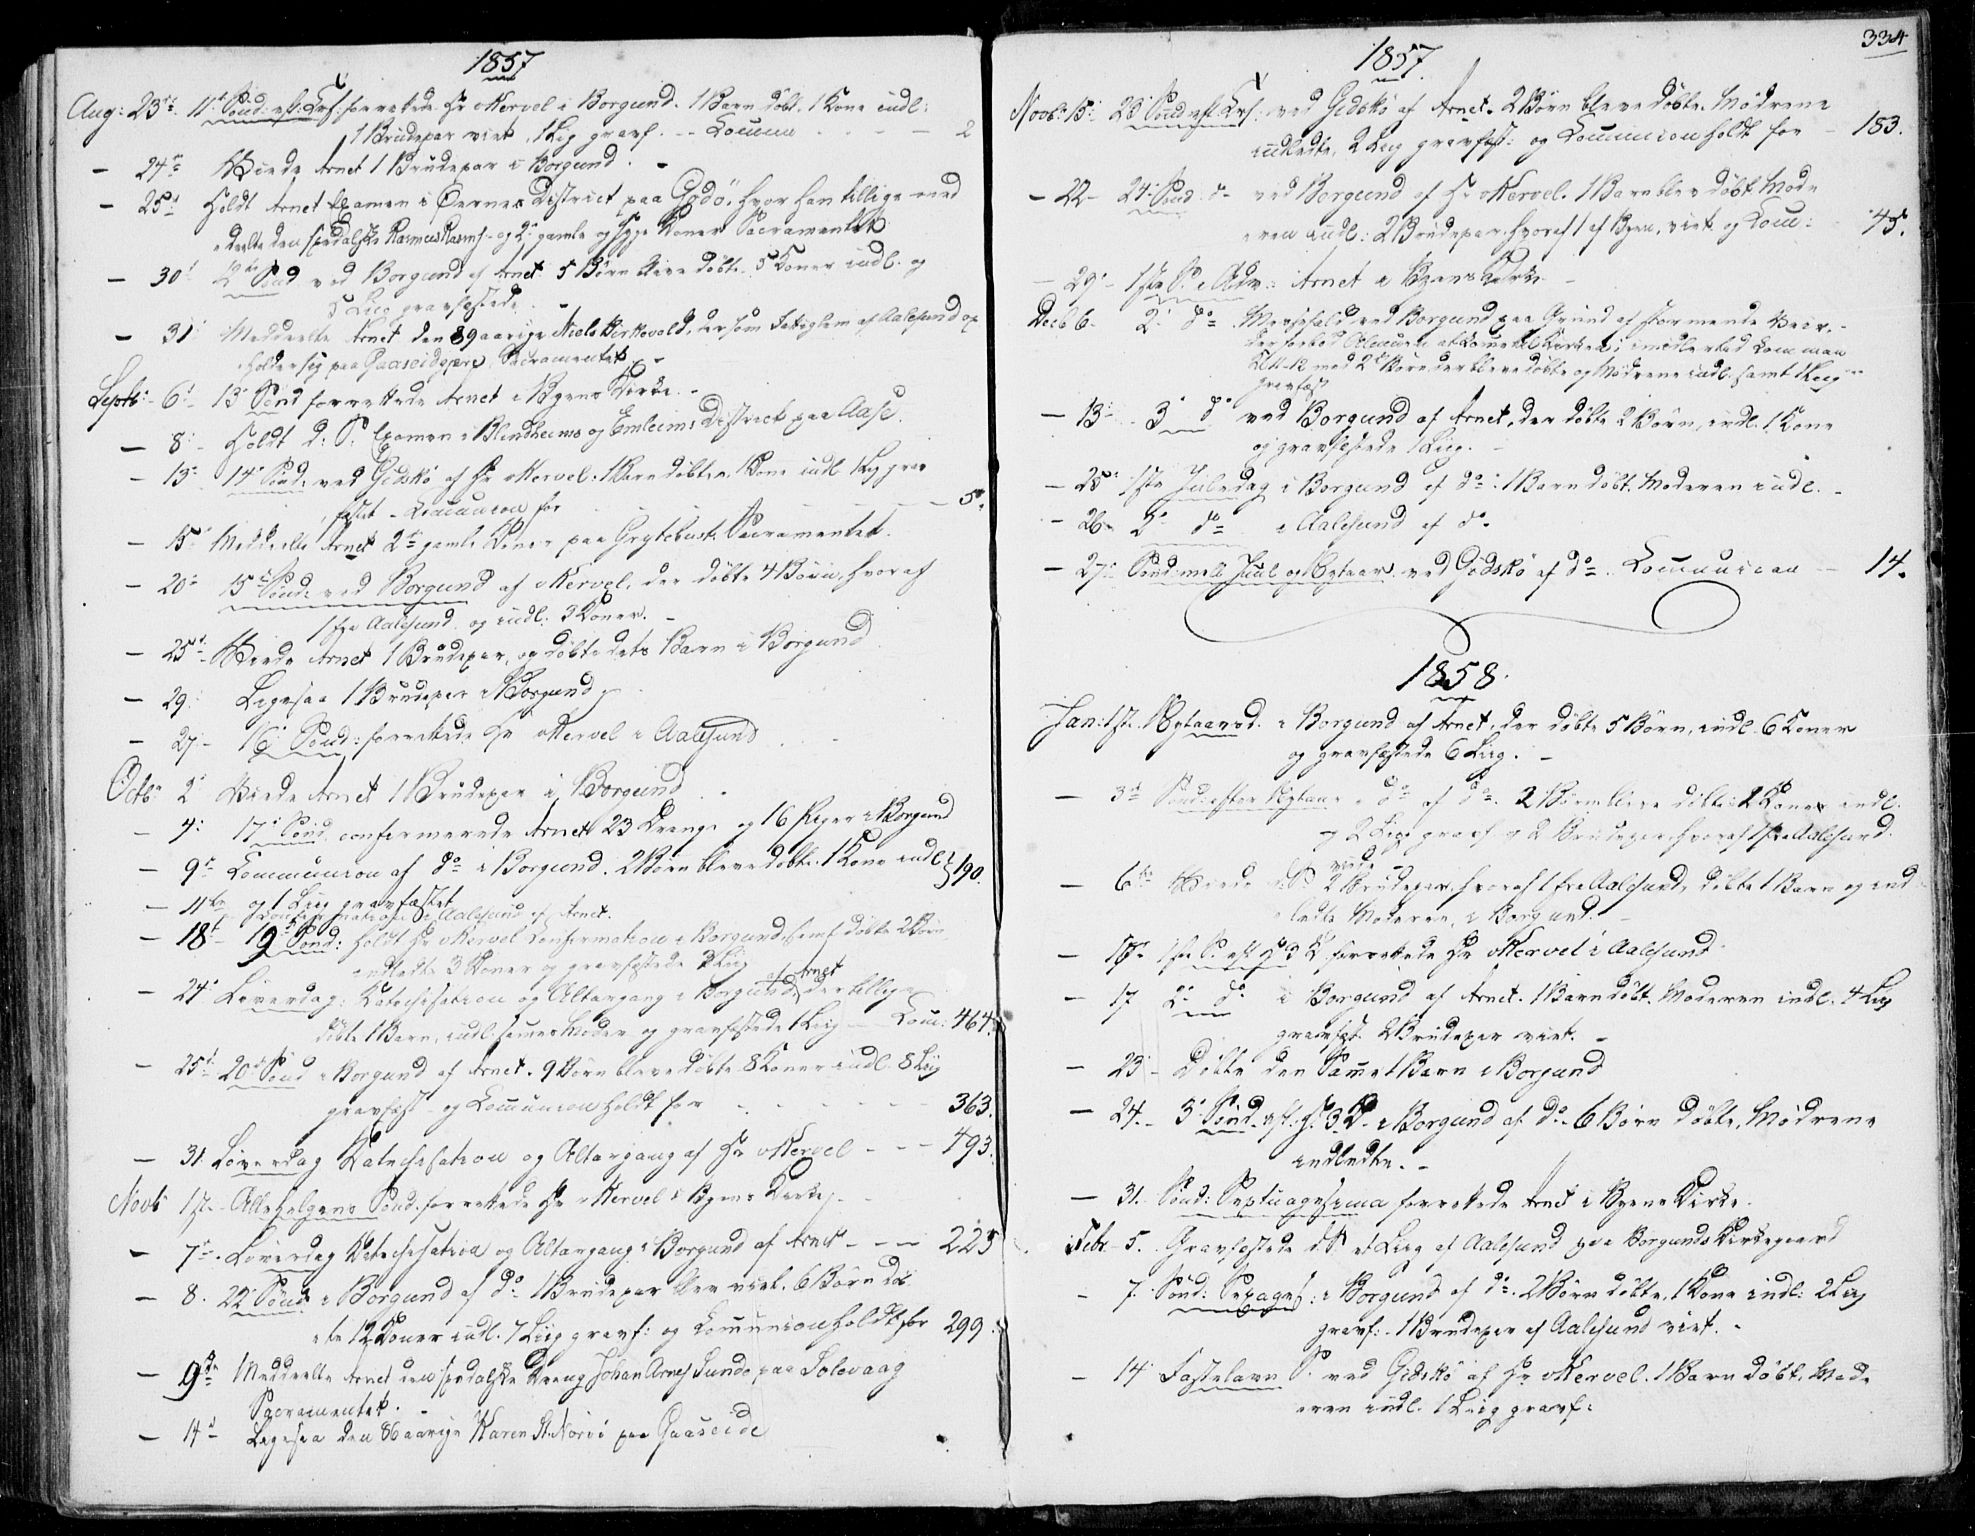 1857
Aug: 23de 11te Sønd. eft. Trf: forrettede Hr Mervel i Borgund. 1 Barn døbt, 1 Kone indl:
1 Brudepar viet, 1 Lig gravf. - Commun - - - 2
- 24de Viede Arnet 1 Brudepar i Borgund. -
- 25de Holdt Arnet Examen i Øernes District paa Godö, hvor han tillige med
deelte den spedalske Rasmus Rasms. og 2de gamle og syge Koner Sacramentet
- 30te 12te Sønd ved Borgund af Arnet 5 Børn bleve døbte. 5 Koner indl. og
5 Liig gravfæstede. -
- 31 Meddeelte Arnet den 89 aarige Niels Kirkevold, der som Fattiglem af Aalesund op
holder sig paa Gaaseidgjære, Sacramentet. -
Septb: 6te 13de Sønd forrettede Arnet i Byens Kirke. -
- 8: Holdt d: S. Examen i Blindheims og Emleims District paa Aase.
- 13de 14de Sønd. ved Gidskø af Hr Mervel. 1 Barn døbt, 1 Kone indl. 1 Lig grav
fæstet - Communion for - - - 5.
- 15 Meddeelte Arnet 2de gamle Koner paa Grytebust. Sacramentet.
- 20de 15de Sønd. ved Borgund af Mervel, der døbte 4 Børn, hvoraf
1 fra Aalesund og indl: 3 Koner. -
- 25de Viede Arnet 1 Brudepar, og døbte dets Barn i Borgund
- 29. Ligesaa 1 Brudepar i Borgund
- 27 - 16 Sønd: forrettede Hr Mervel i Aalesund
Octb: 2de Viede Arnet 1 Brudepar i Borgund
- 4: 17de Sønd confirmerede Arnet 23 Drenge og 16 Piger i Borgund
- 9de Communion af do i Borgund. 2 Børn bleve døbte. 1 Kone indl. } 190.
og 1 Liig gravfæstet
- 11te Confirmation i Aalesund af Arnet.
- 18de 19de Sønd: holdt Hr Mervel Confirmation i Borgund, samt døbte 2 Børn,
indledte 3 Koner og gravfæstede 3 Liig
- 24de Løverdag: Katechisation og Altargang i Borgund af Arnet, der tillige
døbte 1 Barn, indl. sammes Moder og gravfæstede 1 Liig Com: 464.
- 25de 20de Sønd i Borgund af Arnet. 9 Børn bleve døbte 8 Koner indl. 8 Liig
gravfæst - og Communion holdt for - - - 363.
- 31. Løverdag Katechisation og Altargang af Hr Mervel - - - 493.
Novb 1ste Allehelgens Sønd. forrettede Hr Mervel i Byens Kirke.
- 7de. Løverdag Katechisation og Altargang i Borgund af Arnet - - - 225
- 8. 22de Sønd i Borgund af do 1 Brudepar blev viet. 6 Børn døb
te 12 Koner indl. 7 Liig gravf: og Communion holdt for 299.
- 9de Meddeelte Arnet den spedalske Dreng Johan Arnes Sunde paa Solevaag
Sacramentet. -
- 14de Ligesaa den 86 aarige Karen St. Norvi paa Gaaseide
334
1857.
Novb: 15de 23de Sønd eft Trf: ved Gidskø af Arnet. 2 Børn bleve døbte. Mødrene
indledte, 2 Liig gravfæst: og Communion holdt for - 183.
- 22 - 24de Sønd. d- ved Borgund af Hr Mervel. 1 Barn blev døbt Mode
ren indl: 2 Brudepar, hvoraf 1 af Byen, viet og Com: 45.
- 29de - 1ste S. i Adv.: Arnet i Byens Kirke -
Decb 6 - 2de do Messefald ved Borgund paa Grund af stormende Veir,
der forbød Almuen at komme til Kirken; imidlertid kom man
Kl. 11-12 med 2de Børn der bleve døbte og Mødrene indl. samt 1 Liig
gravfæst
- 13de 3de do ved Borgund af Arnet, der døbte 2 Børn, indl. 1 Kone
og gravfæstede 1 Liig. -
- 25de 1ste Juledag i Borgund af do: 1 Barn døbt, Moderen indl. -
- 26. 2de do i Aalesund af do.
- 27de Sønd: mell: Juul og Nytaar ved Gidskø af do. Communion - 14.
1858.
Jan: 1ste Nytaarsd. i Borgund af Arnet, der døbte 5 Børn, indl. 6 Koner
og gravfæstede 6 Liig. -
- 3de Sønd: efter Nytaar i do af do. 2 Børn bleve døbte 2 Koner indl.
og 2 Liig gravf. og 2 Brudepar, hvoraf 1 fra Aalesund.
viede -
- 6te Viede d. S. 2 Brudepar, hvoraf 1 fra Aalesund, døbte 1 Barn og ind
ledte Moderen, i Borgund. -
- 10de 1ste S. eft H 3 K. forrettede Hr Mervel i Aalesund
- 17 2de do i Borgund af Arnet. 1 Barn døbt. Moderen indl. 4 Liig
gravfæst. 2 Brudepar viet. -
- 23 - Døbte den Samme 1 Barn i Borgund
- 24. - 3de Sønd. eft. H. 3 K. i Borgund af do. 6 Børn døbte, Mødrene
indledte. -
- 31. Sønd: Septuagesima forrettede Arnet i Byens Kirke.
Febr. 5. Gravfæstede d. S. et Liig af Aalesund paa Borgunds Kirkegaard
- 7. Sønd: Sexages: i Borgund af do. 2 Børn døbte, 1 Kone indl: 2 Liig
gravf: - 1 Brudepar af Aalesund viet. -
- 14 Fastelavn S. ved Gidskø af Hr Mervel. 1 Barn døbt, Mode
ren indl. 1 Liig gravf: